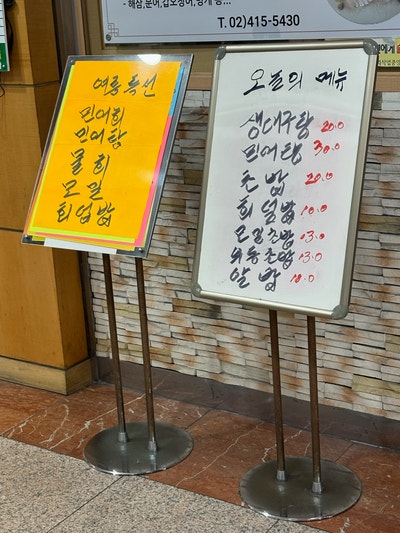 - 해삼,문어,갑오징어,멍게 등...
T. 02)415-5430
여름특선
민어회
민어탕
물회
모밀
회덮밥
오늘의 메뉴
생대구탕 20.0
민어탕 30.0
초밥 20.0
회덮밥 10.0
모밀초밥 13.0
우동초밥 13.0
알밥 10.0